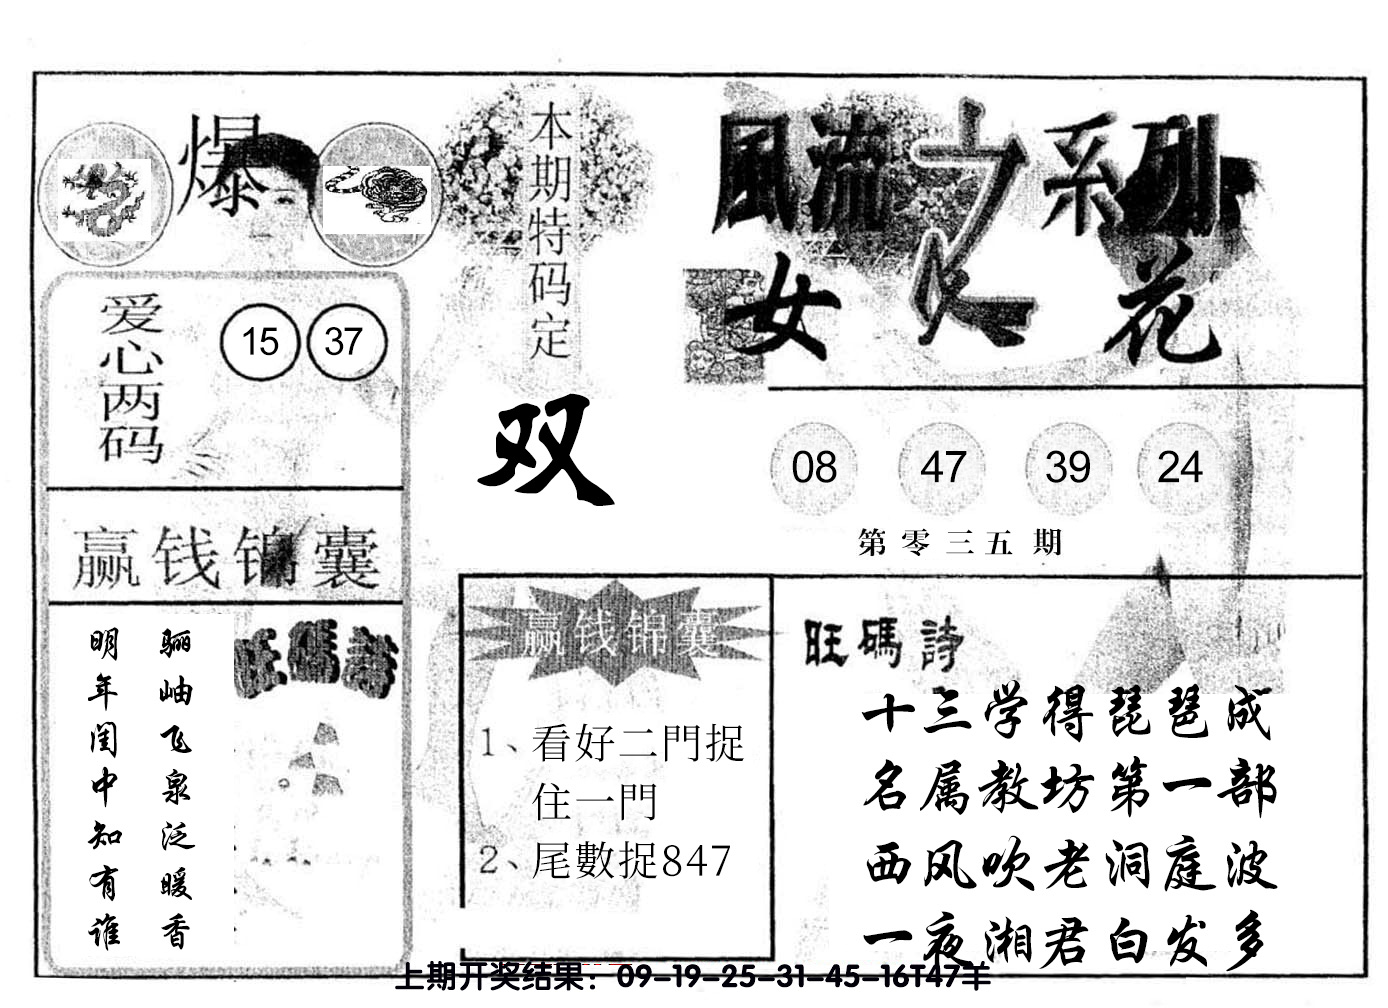 爆
本期特码定
双
風流之系列
女人花
爱心两码
15 37
08 47 39 24
第零三五期
赢钱锦囊
骊岫飞泉泛暖香
明年闺中知有谁
旺碼詩
赢钱锦囊
1、看好二門捉
住一門
2、尾數捉847
旺碼詩
十三学得琵琶成
名属教坊第一部
西风吹老洞庭波
一夜湘君白发多
上期开奖结果：09-19-25-31-45-16T47羊